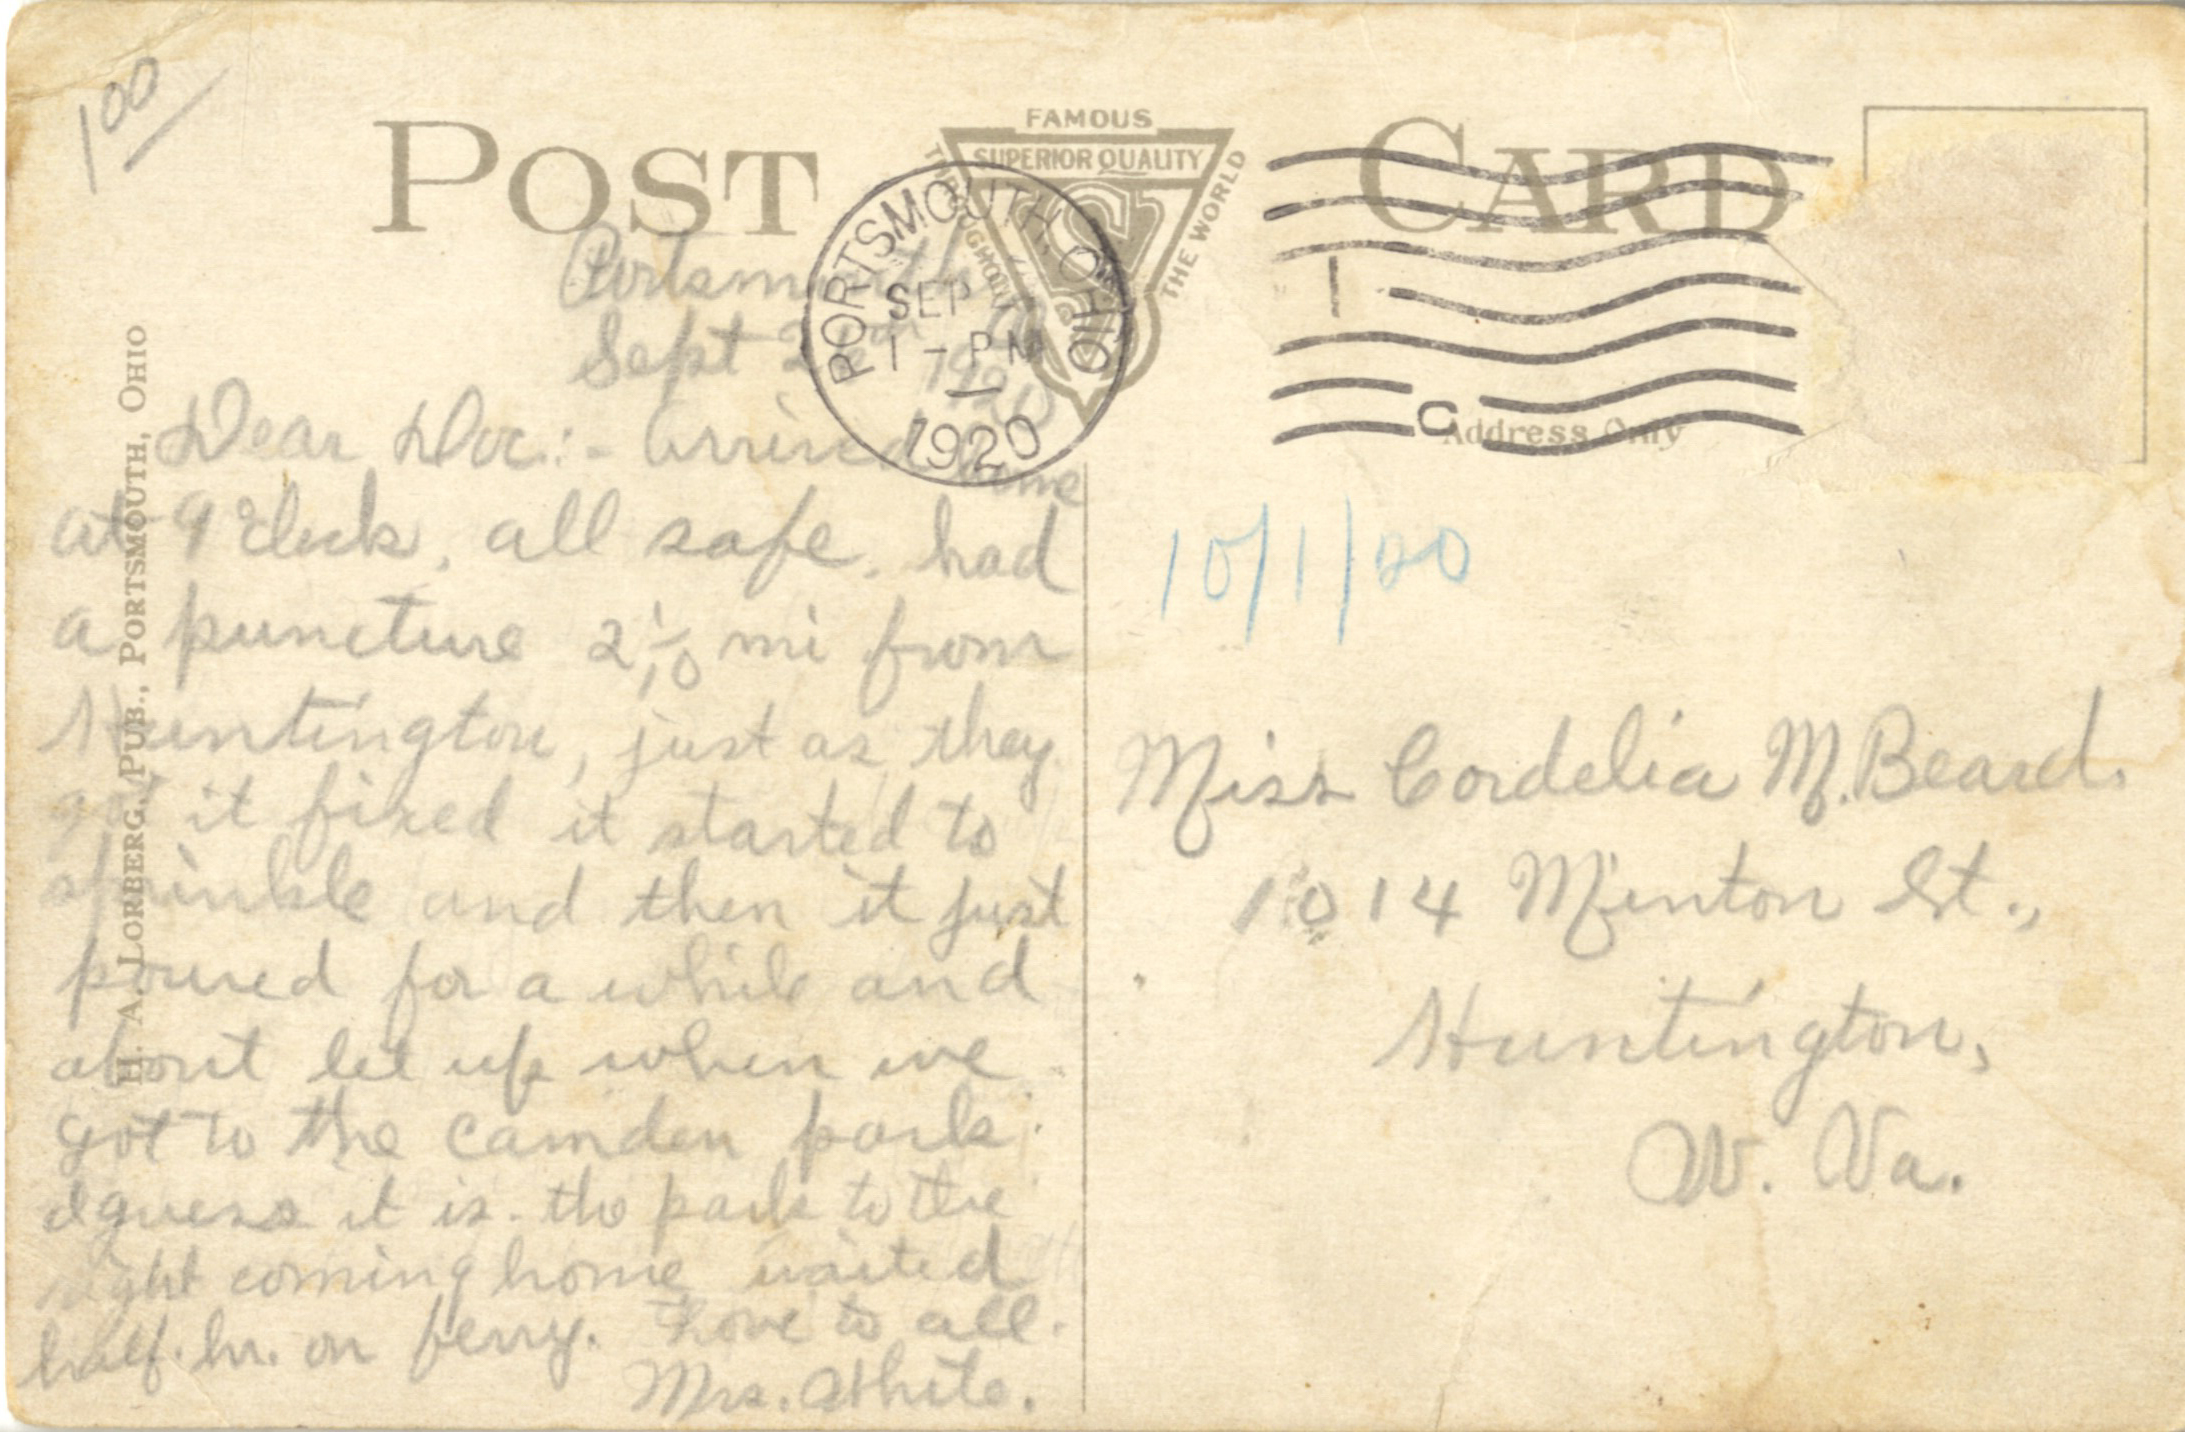 100
POST CARD
FAMOUS
SUPERIOR QUALITY
THROUGHOUT THE WORLD
S
PORTSMOUTH, OHIO
SEP
1 - PM
1920
1
C
Address Only
H. A. LORBERG, PUB., PORTSMOUTH, OHIO
Portsmouth
Sept
1920
Dear Doc:- Arrived home
at 9 o'clock, all safe, had
a puncture 2 1/10 mi from
Huntington, just as they
got it fixed it started to
sprinkle and then it just
poured for a while and
about let up when we
got to the Camden park
I guess it is - the park to the
right coming home waited
half. hr. on ferry. Love to all.
Mrs. White.
10/1/20
Miss Cordelia M. Beard.
1014 Minton St.,
Huntington,
W. Va.